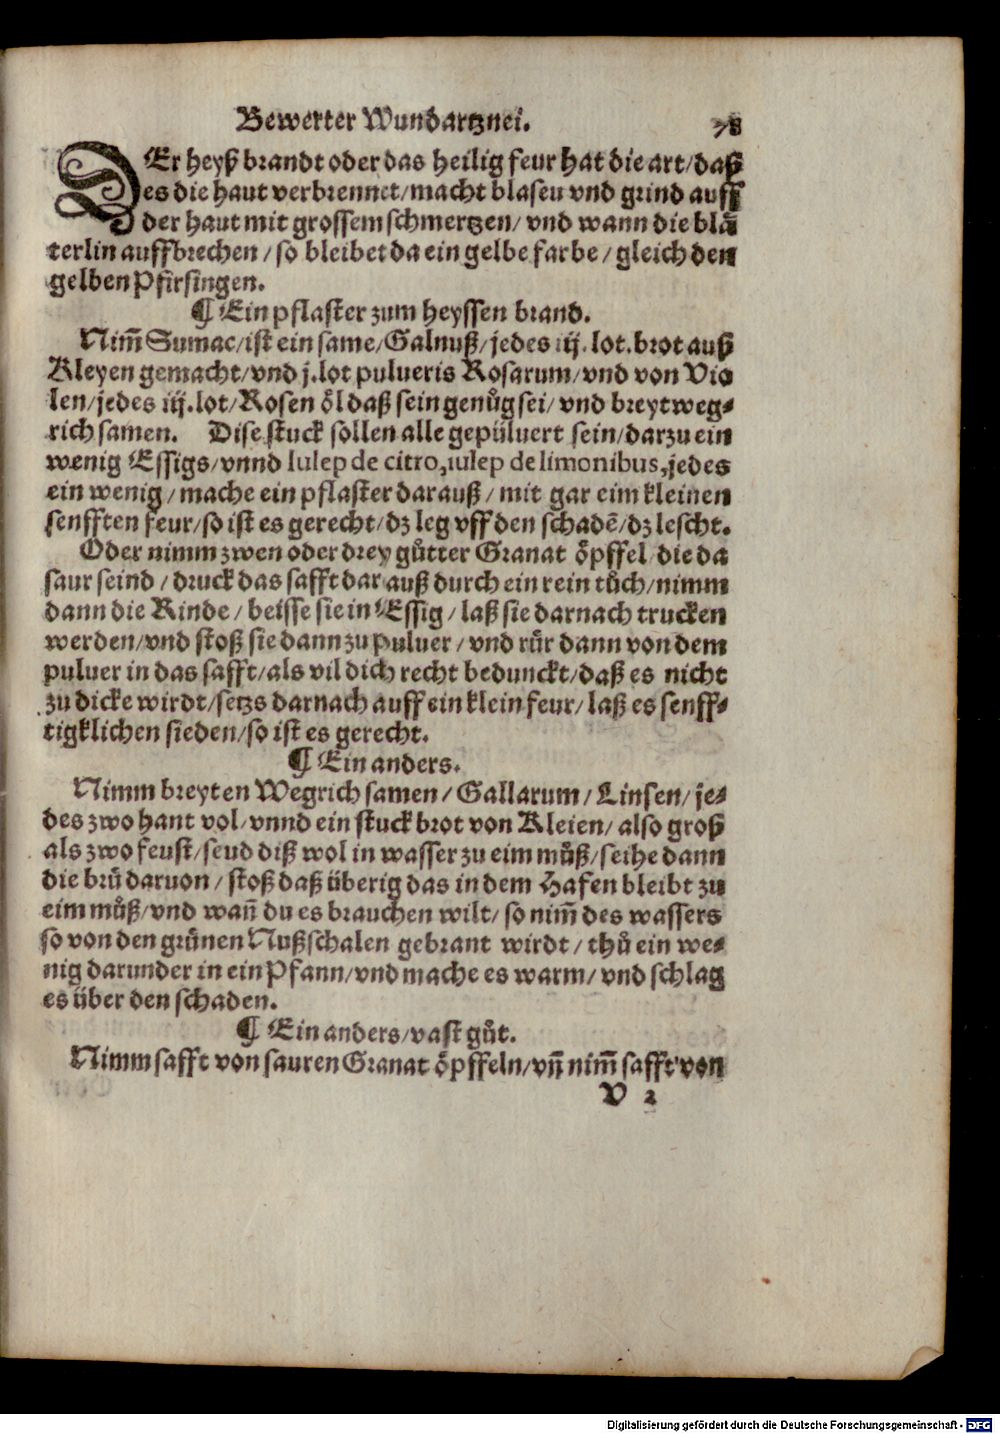 Bewerter Wundartznei. 78
DEr heyß brandt oder das heilig feur hat die art/daß
es die haut verbrennet/macht blasen vnd grind auff
der haut mit grossem schmertzen/ vnd wann die blā
terlin auffbrechen/so bleibet da ein gelbe farbe/gleich den
gelben Pfirsingen.
¶ Ein pflaster zum heyssen brand.
Nim̄ Sumac/ist ein same/Galnuß/jedes iij. lot. brot auß
Kleyen gemacht/vnd j. lot pulueris Rosarum/vnd von Vio
len/jedes iij. lot/Rosen öl daß sein genůg sei/ vnd breyt weg-
rich samen. Dise stuck sollen alle gepüluert sein/darzu ein
wenig Essigs/vnnd Iulep de citro, iulep de limonibus, jedes
ein wenig/mache ein pflaster darauß/ mit gar eim kleinen
senfften feur/so ist es gerecht/dz leg vff den schadē/dz lescht.
Oder nimm zwen oder drey gůtter Granat öpffel/die da
saur seind/druck das safft darauß durch ein rein tůch/nimm
dann die Rinde/beisse sie in Essig/laß sie darnach trucken
werden/vnd stoß sie dann zu puluer/vnd rür dann von dem
puluer in das safft/als vil dich recht bedunckt/daß es nicht
zu dicke wirdt/setzs darnach auff ein klein feur/laß es senff-
tigklichen sieden/so ist es gerecht.
¶ Ein anders.
Nimm breyten Wegrich samen/Gallarum/Linsen/je-
des zwo hant vol/vnnd ein stuck brot von Kleien/also groß
als zwo feust/seud diß wol in wasser zu eim můß/seihe dann
die brů daruon/stoß daß überig das in dem Hafen bleibt zu
eim můß/vnd wañ du es brauchen wilt/so nim̄ des wassers
so von den grůnen Nußschalen gebrant wirdt/thů ein we-
nig darunder in ein Pfann/vnd mache es warm/vnd schlag
es über den schaden.
¶ Ein anders/vast gůt.
Nimm safft von sauren Granat öpffeln/vñ nim̄ safft von
V 2
Digitalisierung gefördert durch die Deutsche Forschungsgemeinschaft - DFG